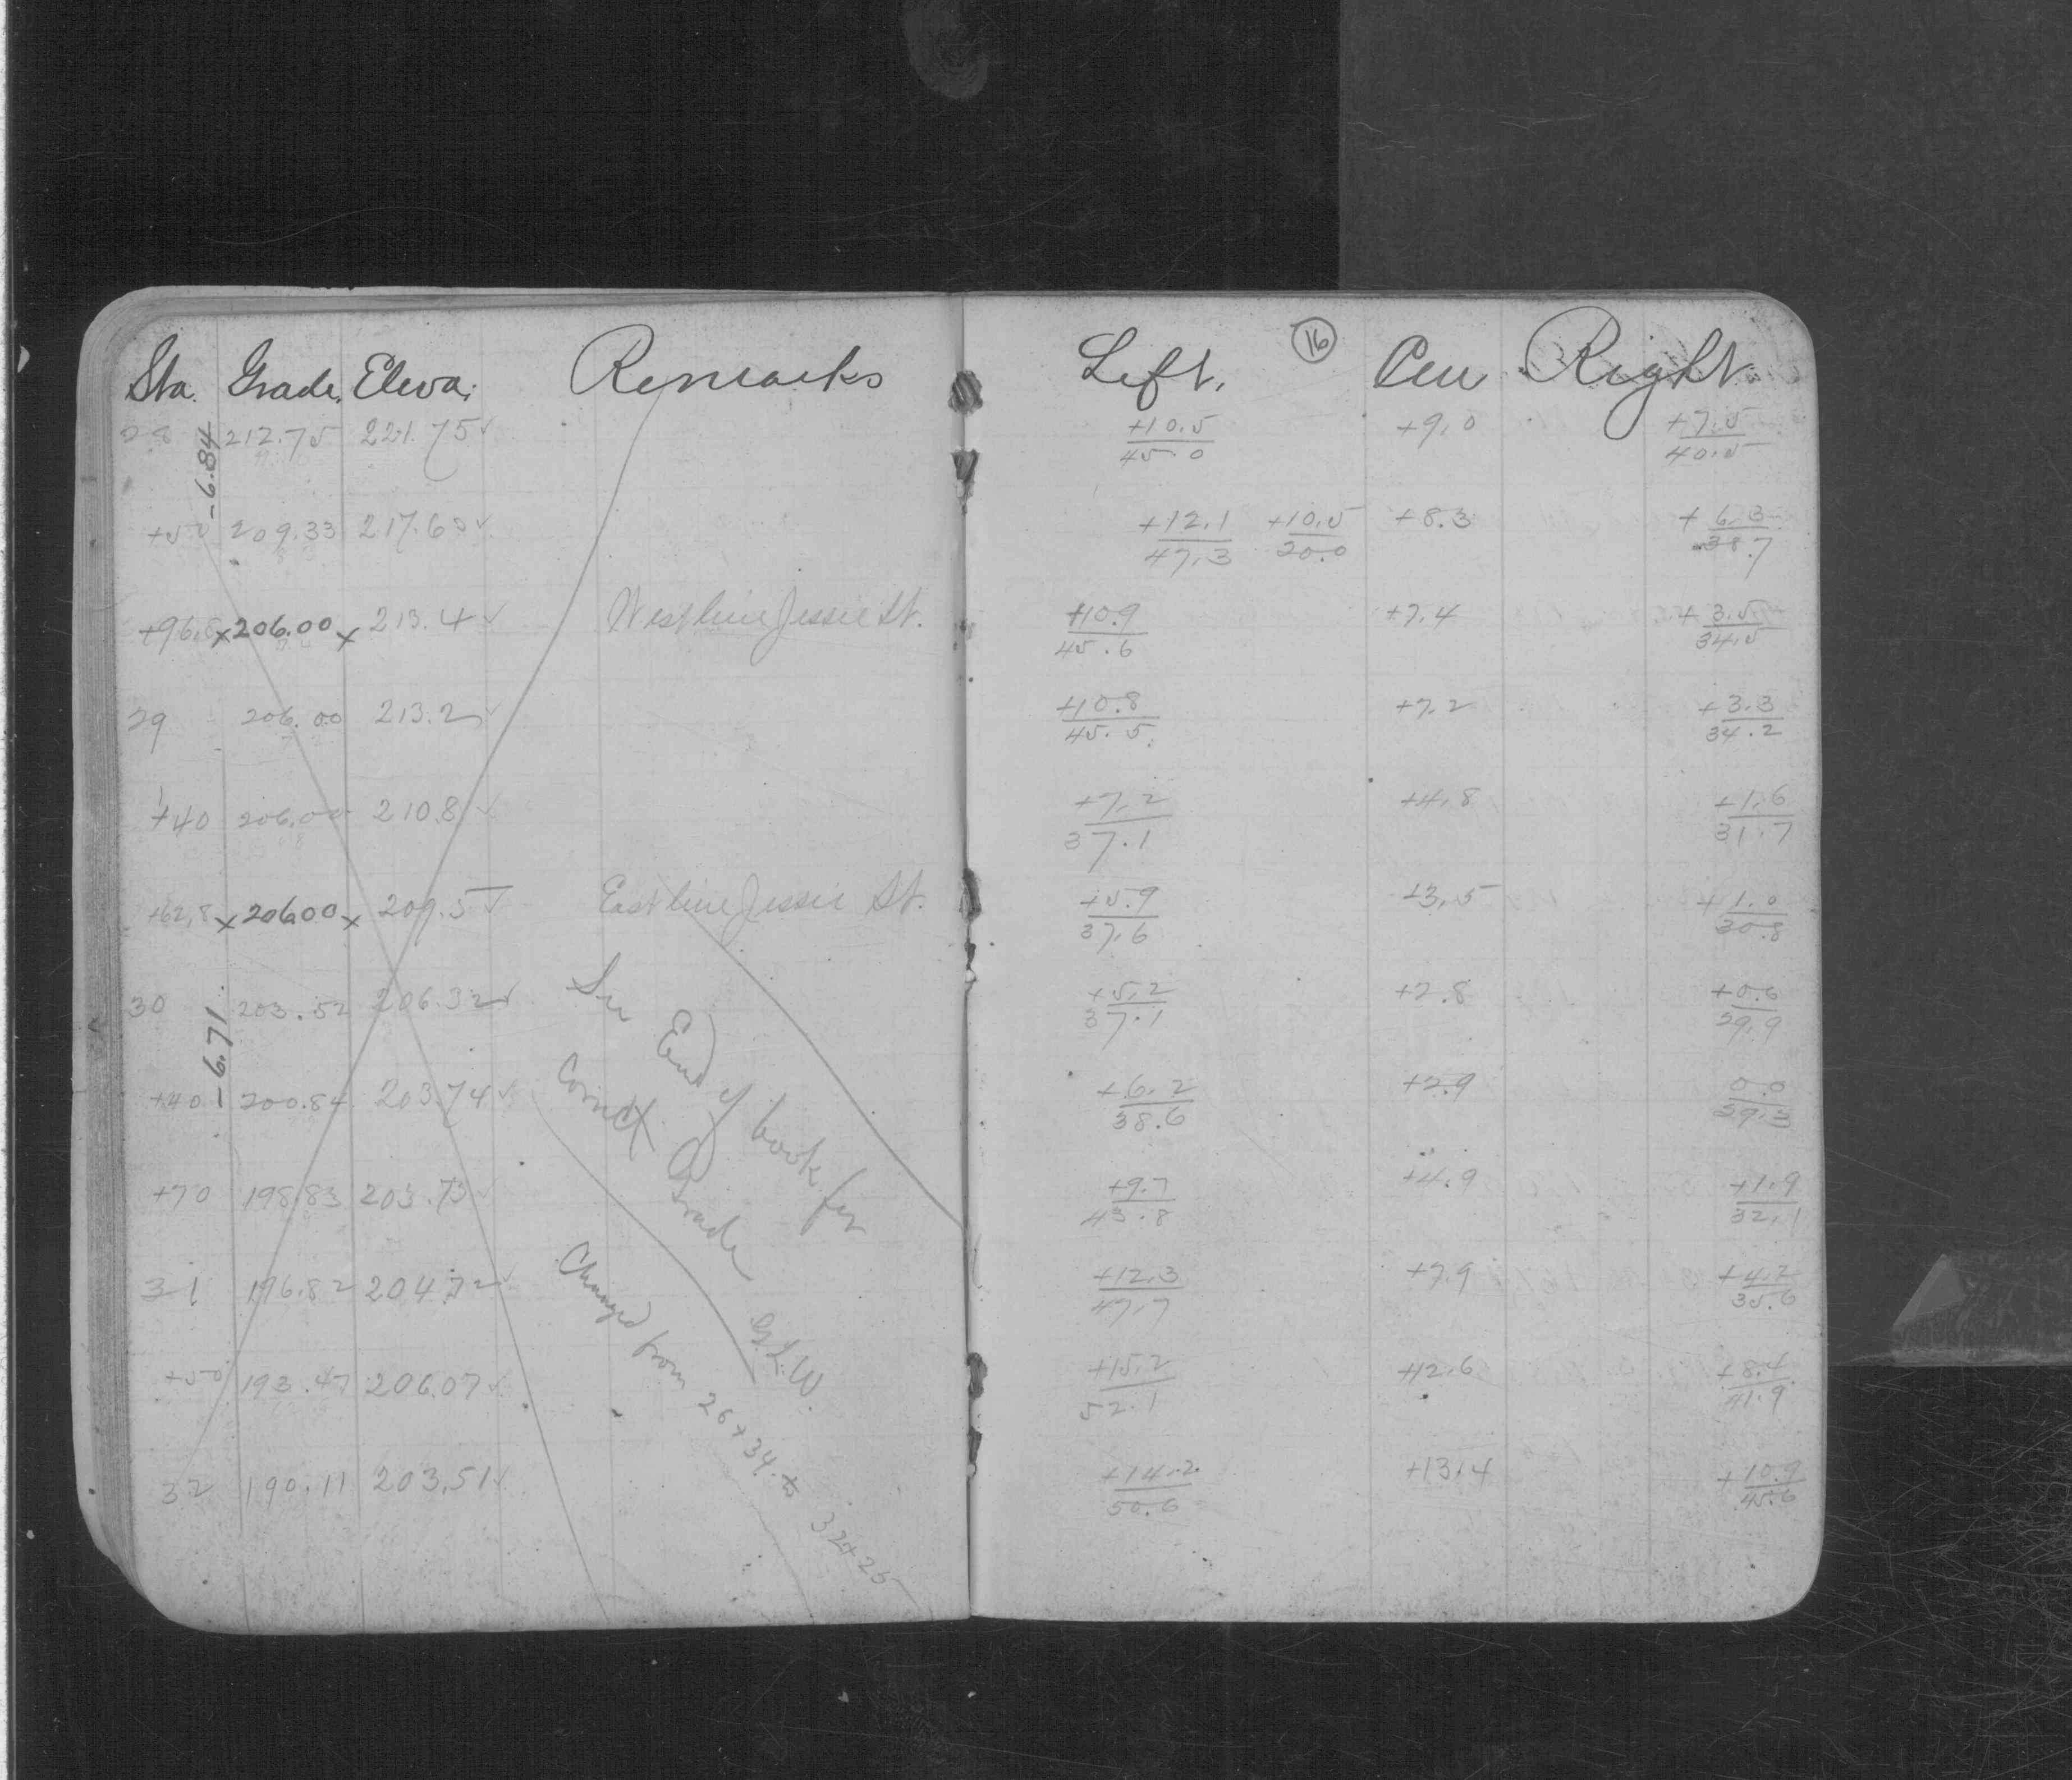 Sta. Grade. Eleva. Remarks Left. 16 Cen Right.
28 212.75 221.75✓ +10.5/45.0 +9.0 +7.5/40.5
-6.84
+50 209.33 217.60✓ +12.1/47.3 +10.5/20.0 +8.3 +6.3/38.7
+96.8 x 206.00 x 213.4✓ West line Jessie St. +10.9/45.6 +7.4 +3.5/34.5
29 206.00 213.2✓ +10.8/45.5 +7.2 +3.3/34.2
+40 206.00 210.8✓ +7.2/37.1 +4.8 +1.6/31.7
+62.8 x 206.00 x 209.5✓ East line Jessie St. +5.9/37.6 +3.5 +1.0/30.8
30 203.52 206.32✓ +5.2/37.1 +2.8 +0.6/29.9
-6.71
+40 200.84 203.74✓ +6.2/38.6 +2.9 0.0/39.3
+70 198.83 203.73✓ +9.7/43.8 +4.9 +1.9/32.1
31 196.82 204.72✓ +12.3/47.7 +7.9 +4.2/35.6
+50 193.47 206.07✓ +15.2/52.1 +12.6 +8.4/41.9
32 190.11 203.51✓ +14.2/50.6 +13.4 +10.9/45.6
See End of book for
Correct Grade
G.L.W.
Changed from 26+34. to 32+25